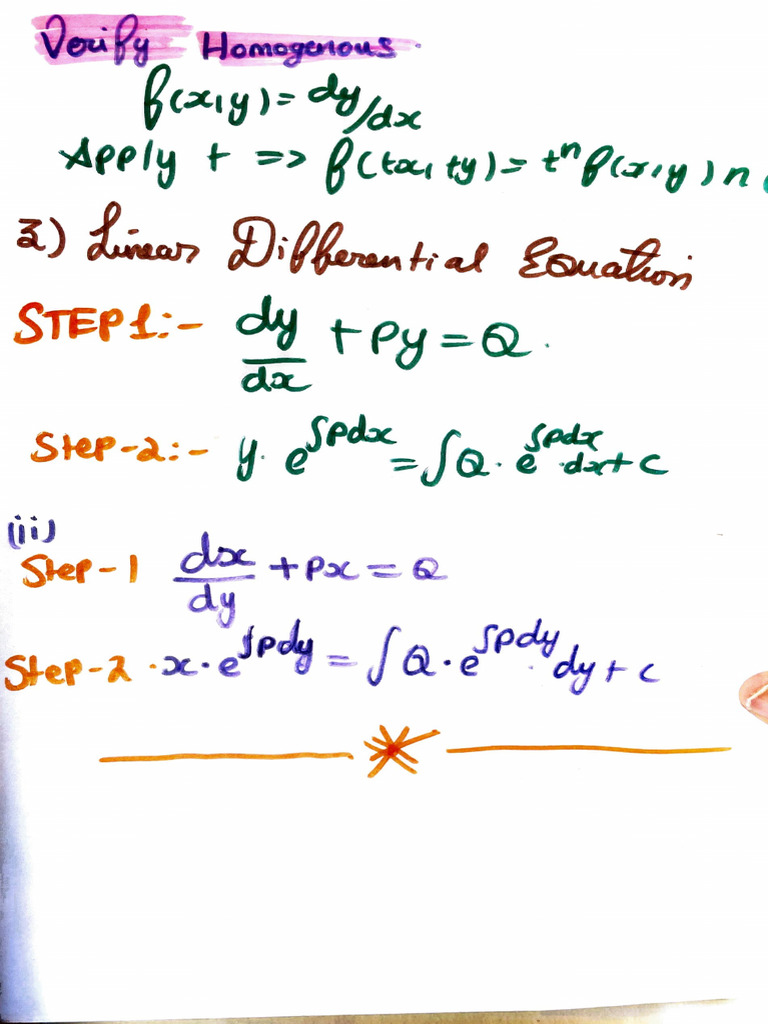 Verify Homogenous
f(x,y) = dy/dx
Apply t => f(tx, ty) = tⁿ f(x,y) n
3) Linear Differential Equation
STEP1:- dy/dx + Py = Q.
Step-2:- y. e^∫Pdx = ∫Q. e^∫Pdx .dx + c
(ii)
Step-1 dx/dy + Px = Q
Step-2 . x. e^∫Pdy = ∫Q. e^∫Pdy . dy + c